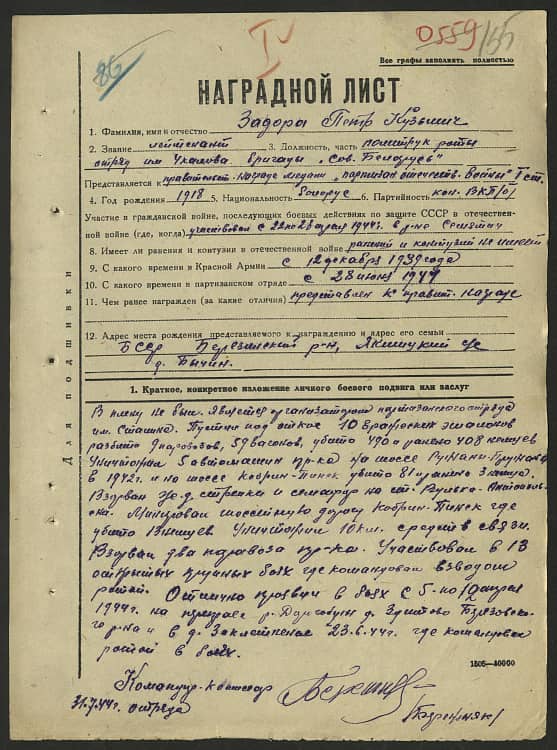 0559/155
86
Все графы заполнять полностью
НАГРАДНОЙ ЛИСТ
1. Фамилия, имя и отчество Задора Петр Кузьмич
2. Звание лейтенант 3. Должность, часть политрук роты
отряд им Чкалова бригады „Сов. Белорусь"
Представляется к правительст. Награде медали „партизан отечеств. Войны" I ст.
4. Год рождения 1918 5. Национальность белорус 6. Партийность кан. ВКП(б)
Участие в гражданской войне, последующих боевых действиях по защите СССР в отечествен-
ной войне (где, когда) участвовал с 22 по 28 1944г. в р-не
8. Имеет ли ранения и контузии в отечественной войне ранений и контузий не имеет
9. С какого времени в Красной Армии с 12 декабря 1939 года
10. С какого времени в партизанском отряде с 28 июня 1942
11. Чем ранее награжден (за какие отличия) представлен к правит. награде
12. Адрес места рождения представляемого к награждению и адрес его семьи
БССР Березинский р-н, Якшицкий с/с
д. Бычин.
Для подшивки
1. Краткое, конкретное изложение личного боевого подвига или заслуг
В плену не был. Является организатором партизанского отряда
им. Сташка. Пустил под откос 10 вражеских эшелонов
разбито 9 паровозов, 59 вагонов, убито 490 и ранено 408 немцев
Уничтожил 5 автомашин пр-ка на шоссе Ружани-Пружана
в 1942г. и на шоссе Кобрин-Пинск убито 81 и ранено 3 немца.
Взорван ж.д. стрелки и семафор на ст.
Минировал шоссейную дорогу Кобрин-Пинск где
убито 8 немцев. Уничтожил 10 км. средств связи.
Взорвал два паровоза пр-ка. Участвовал в 13
открытых крупных боях где командовал взводом
ротой. Отлично проявил в боях с 5 по 12 апреля
1944г. на д. Березовско-
го р-на и в д. 23.6.44г. где командовал
ротой в боях.
1505—40000
Командир
31.7.44г. отряда